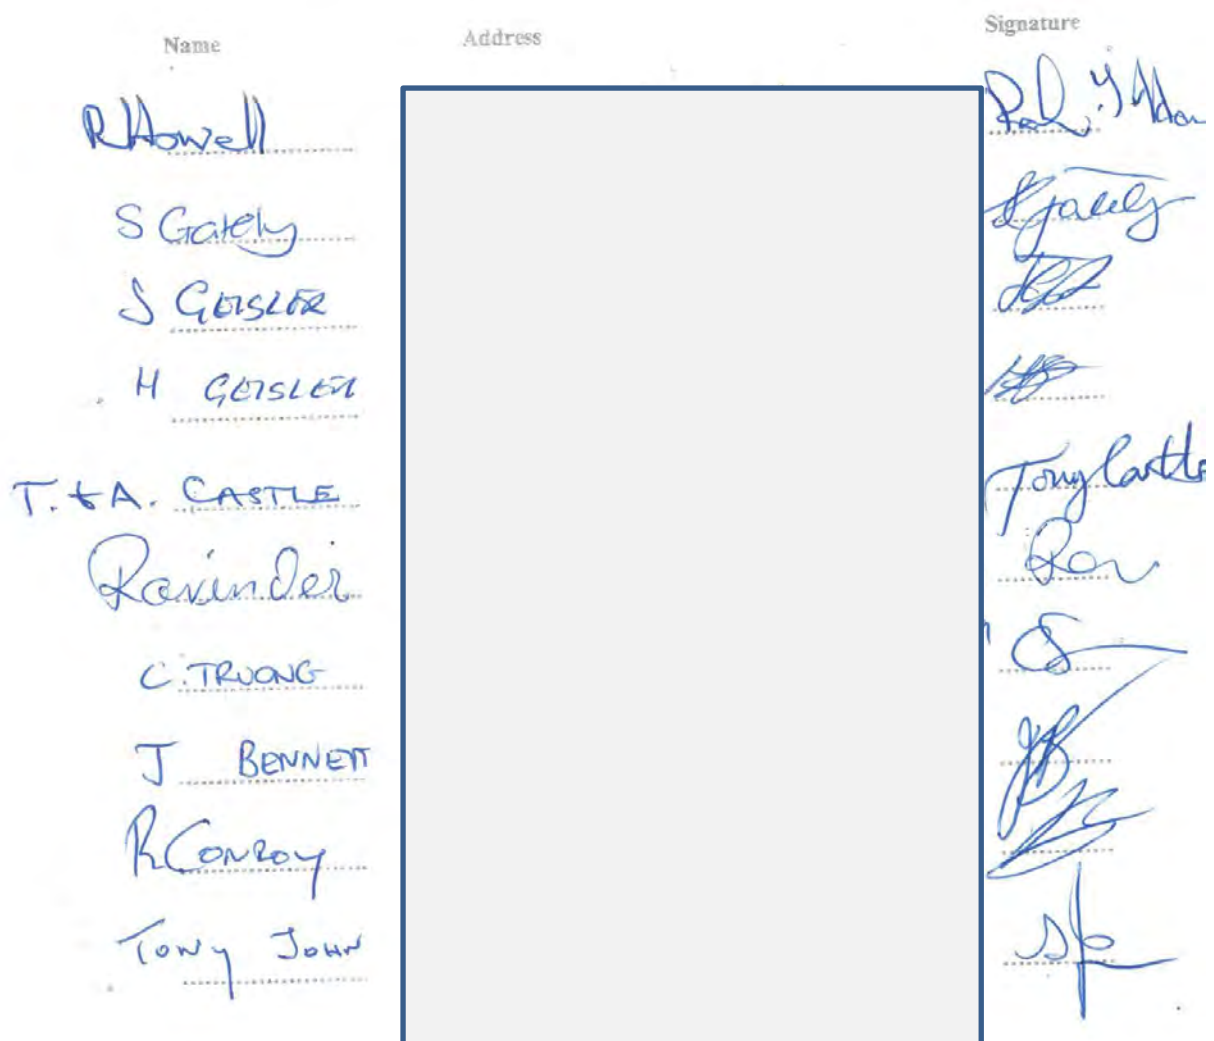 Name Address Signature
R Howell
S Gately S Gately
S GEISLER
H GEISLER
T. & A. CASTLE Tony Castle
Ravinder Rav
C. TRUONG
J BENNETT JB
R CONROY
TONY JOHN